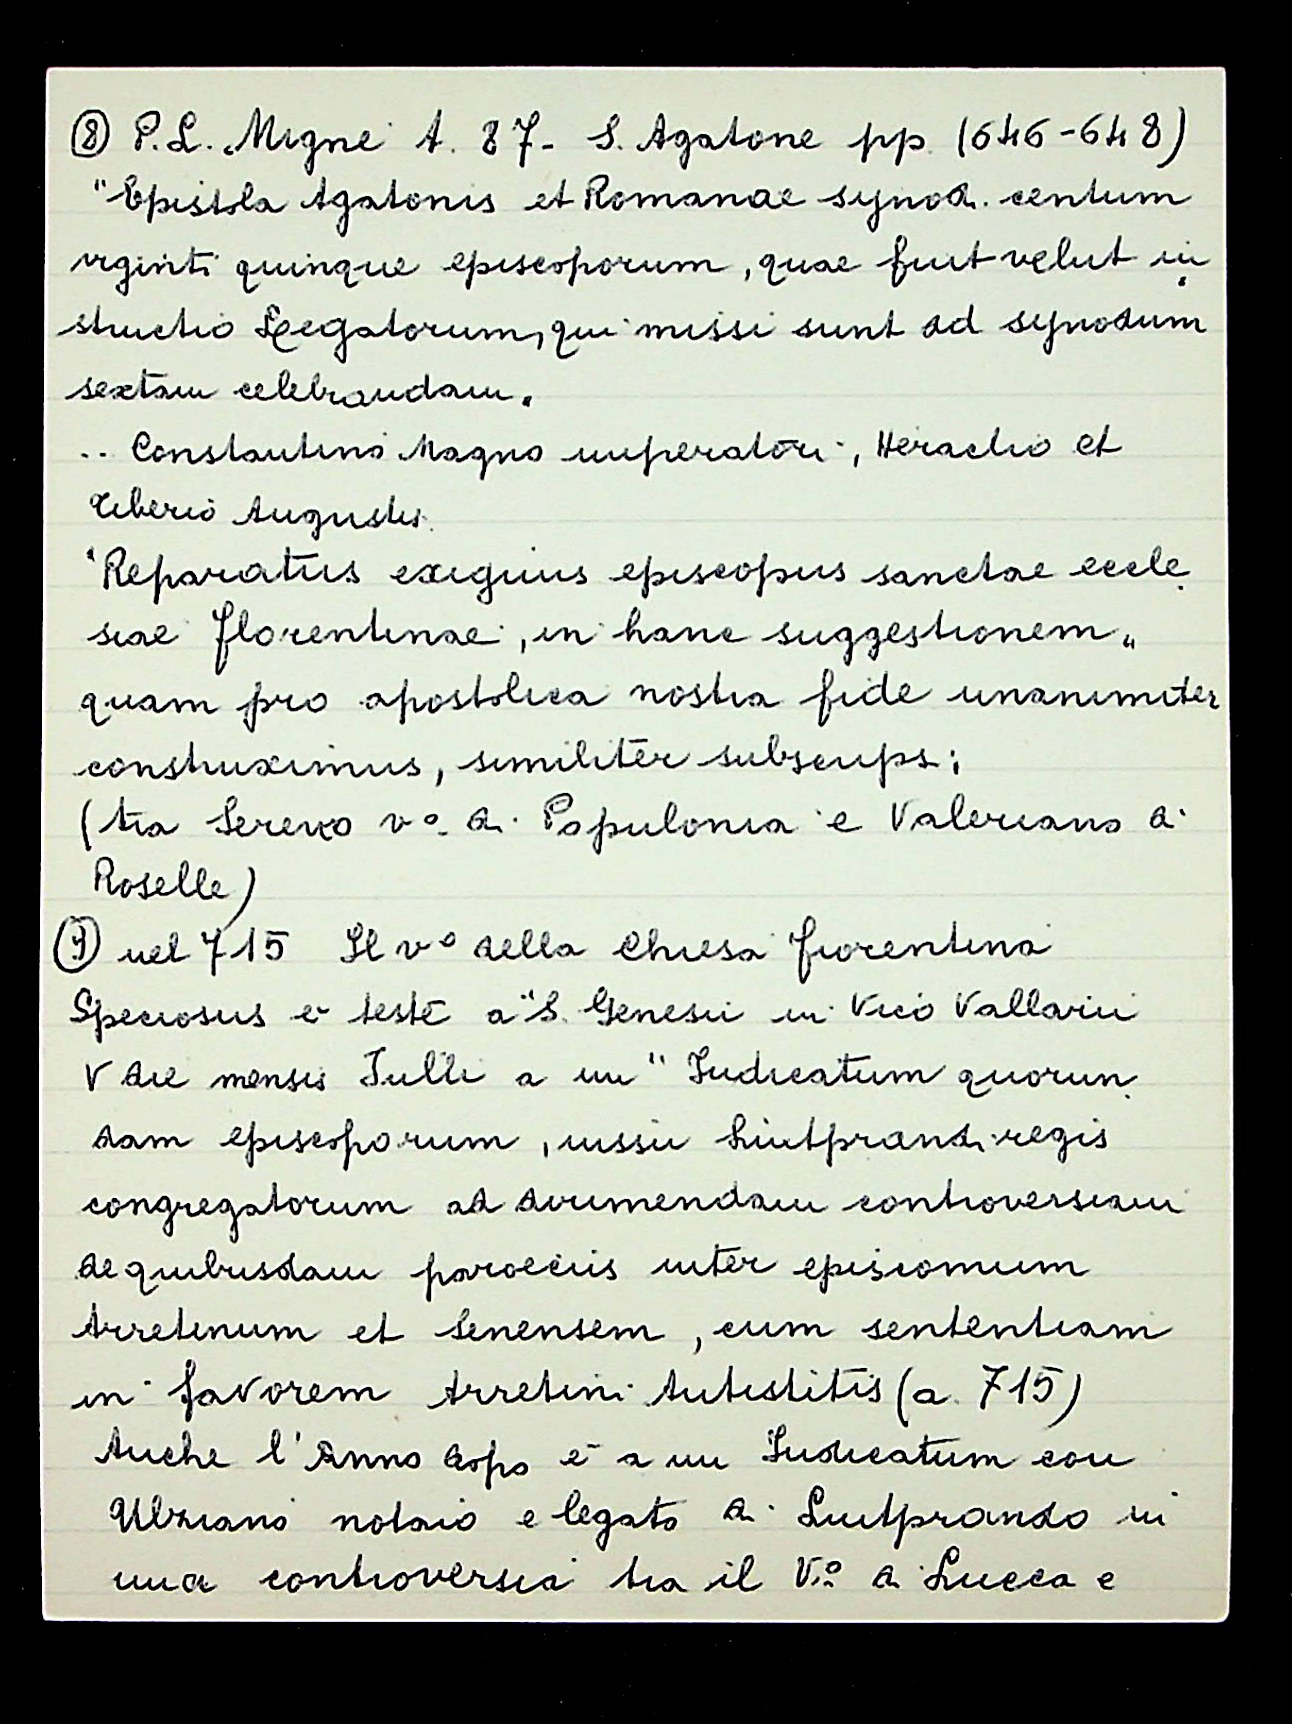 ⑧ P.L. Migne t. 87- S. Agatone pp. (646-648)
"Epistola Agatonis et Romanae synodi. centum
viginti quinque episcoporum, quae fuit velut in
structio Legatorum, qui missi sunt ad synodum
sextam celebrandam„
.. Constantino Magno imperatori, Heraclio et
Tiberio Augustis.
"Reparatus exiguus episcopus sanctae eccle
siae florentinae, in hanc suggestionem„
quam pro apostolica nostra fide unanimiter
construximus, similiter subscripsi;
(tra Sereno vº di Populonia e Valeriano di
Roselle)
⑨ nel 715 Il vº della Chiesa fiorentina
Speciosus è teste a "S. Genesii in Vico Vallarii
V die mensis Julli a un "Judicatum quorun
dam episcoporum, iussu Liutprandi regis
congregatorum ad dirimendam controversiam
de quibusdam paroeciis inter episcomum
Arretinum et Senensem, cum sententiam
in favorem Arretini Antistitis (a. 715)
Anche l'Anno dopo è a un Judicatum con
Ulziano notaio e legato di Liutprando in
una controversia tra il Vº di Lucca e